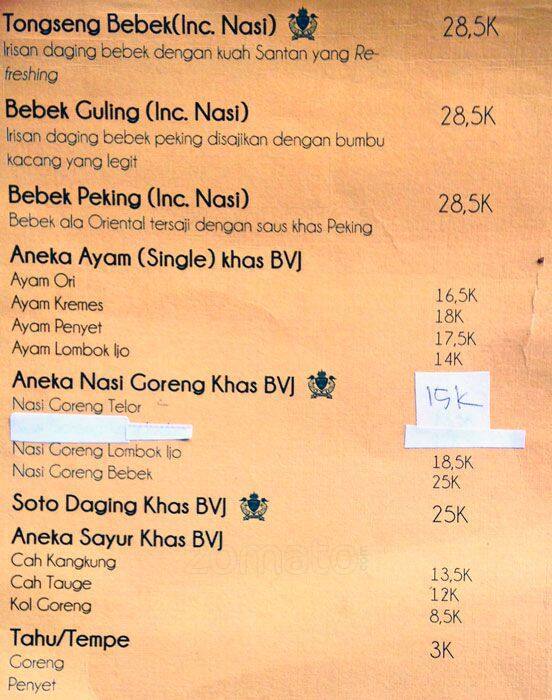 Tongseng Bebek(Inc. Nasi) 28,5K
Irisan daging bebek dengan kuah Santan yang Re-
freshing
Bebek Guling (Inc. Nasi) 28,5K
Irisan daging bebek peking disajikan dengan bumbu
kacang yang legit
Bebek Peking (Inc. Nasi) 28,5K
Bebek ala Oriental tersaji dengan saus khas Peking
Aneka Ayam (Single) khas BVJ
Ayam Ori 16,5K
Ayam Kremes 18K
Ayam Penyet 17,5K
Ayam Lombok Ijo 14K
Aneka Nasi Goreng Khas BVJ
Nasi Goreng Telor 15K
Nasi Goreng Lombok Ijo 18,5K
Nasi Goreng Bebek 25K
Soto Daging Khas BVJ 25K
Aneka Sayur Khas BVJ
zomato
Cah Kangkung 13,5K
Cah Tauge 12K
Kol Goreng 8,5K
Tahu/Tempe 3K
Goreng
Penyet